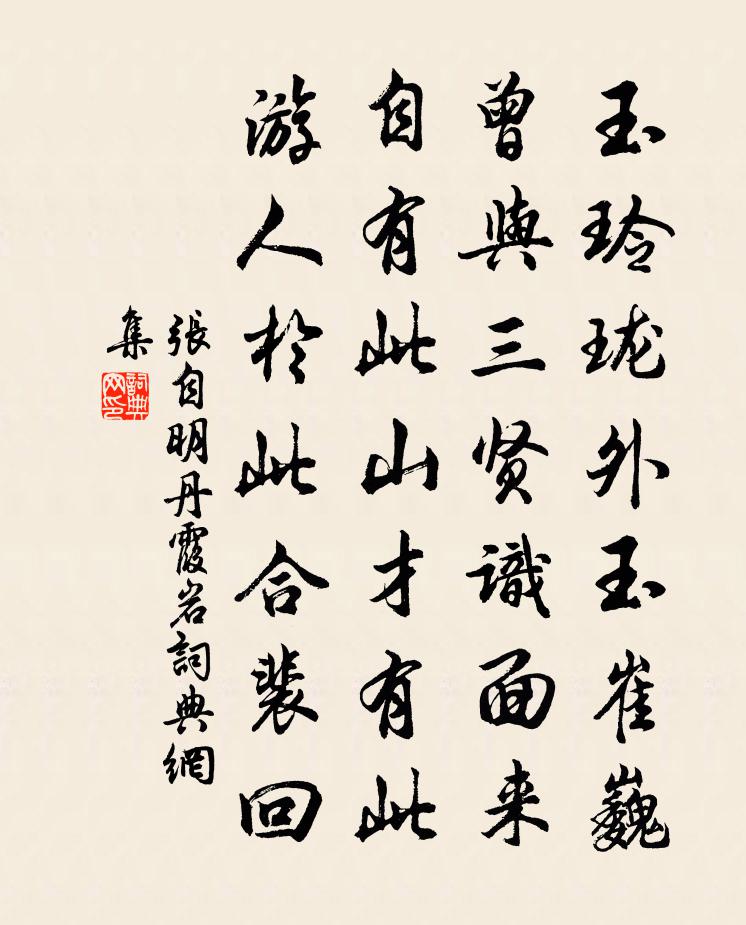 玉玲珑外玉崔巍
曾與三贤識面来
自有此山才有此
游人於此合裴回
張自明丹霞岩詞典網
集
詞典网印